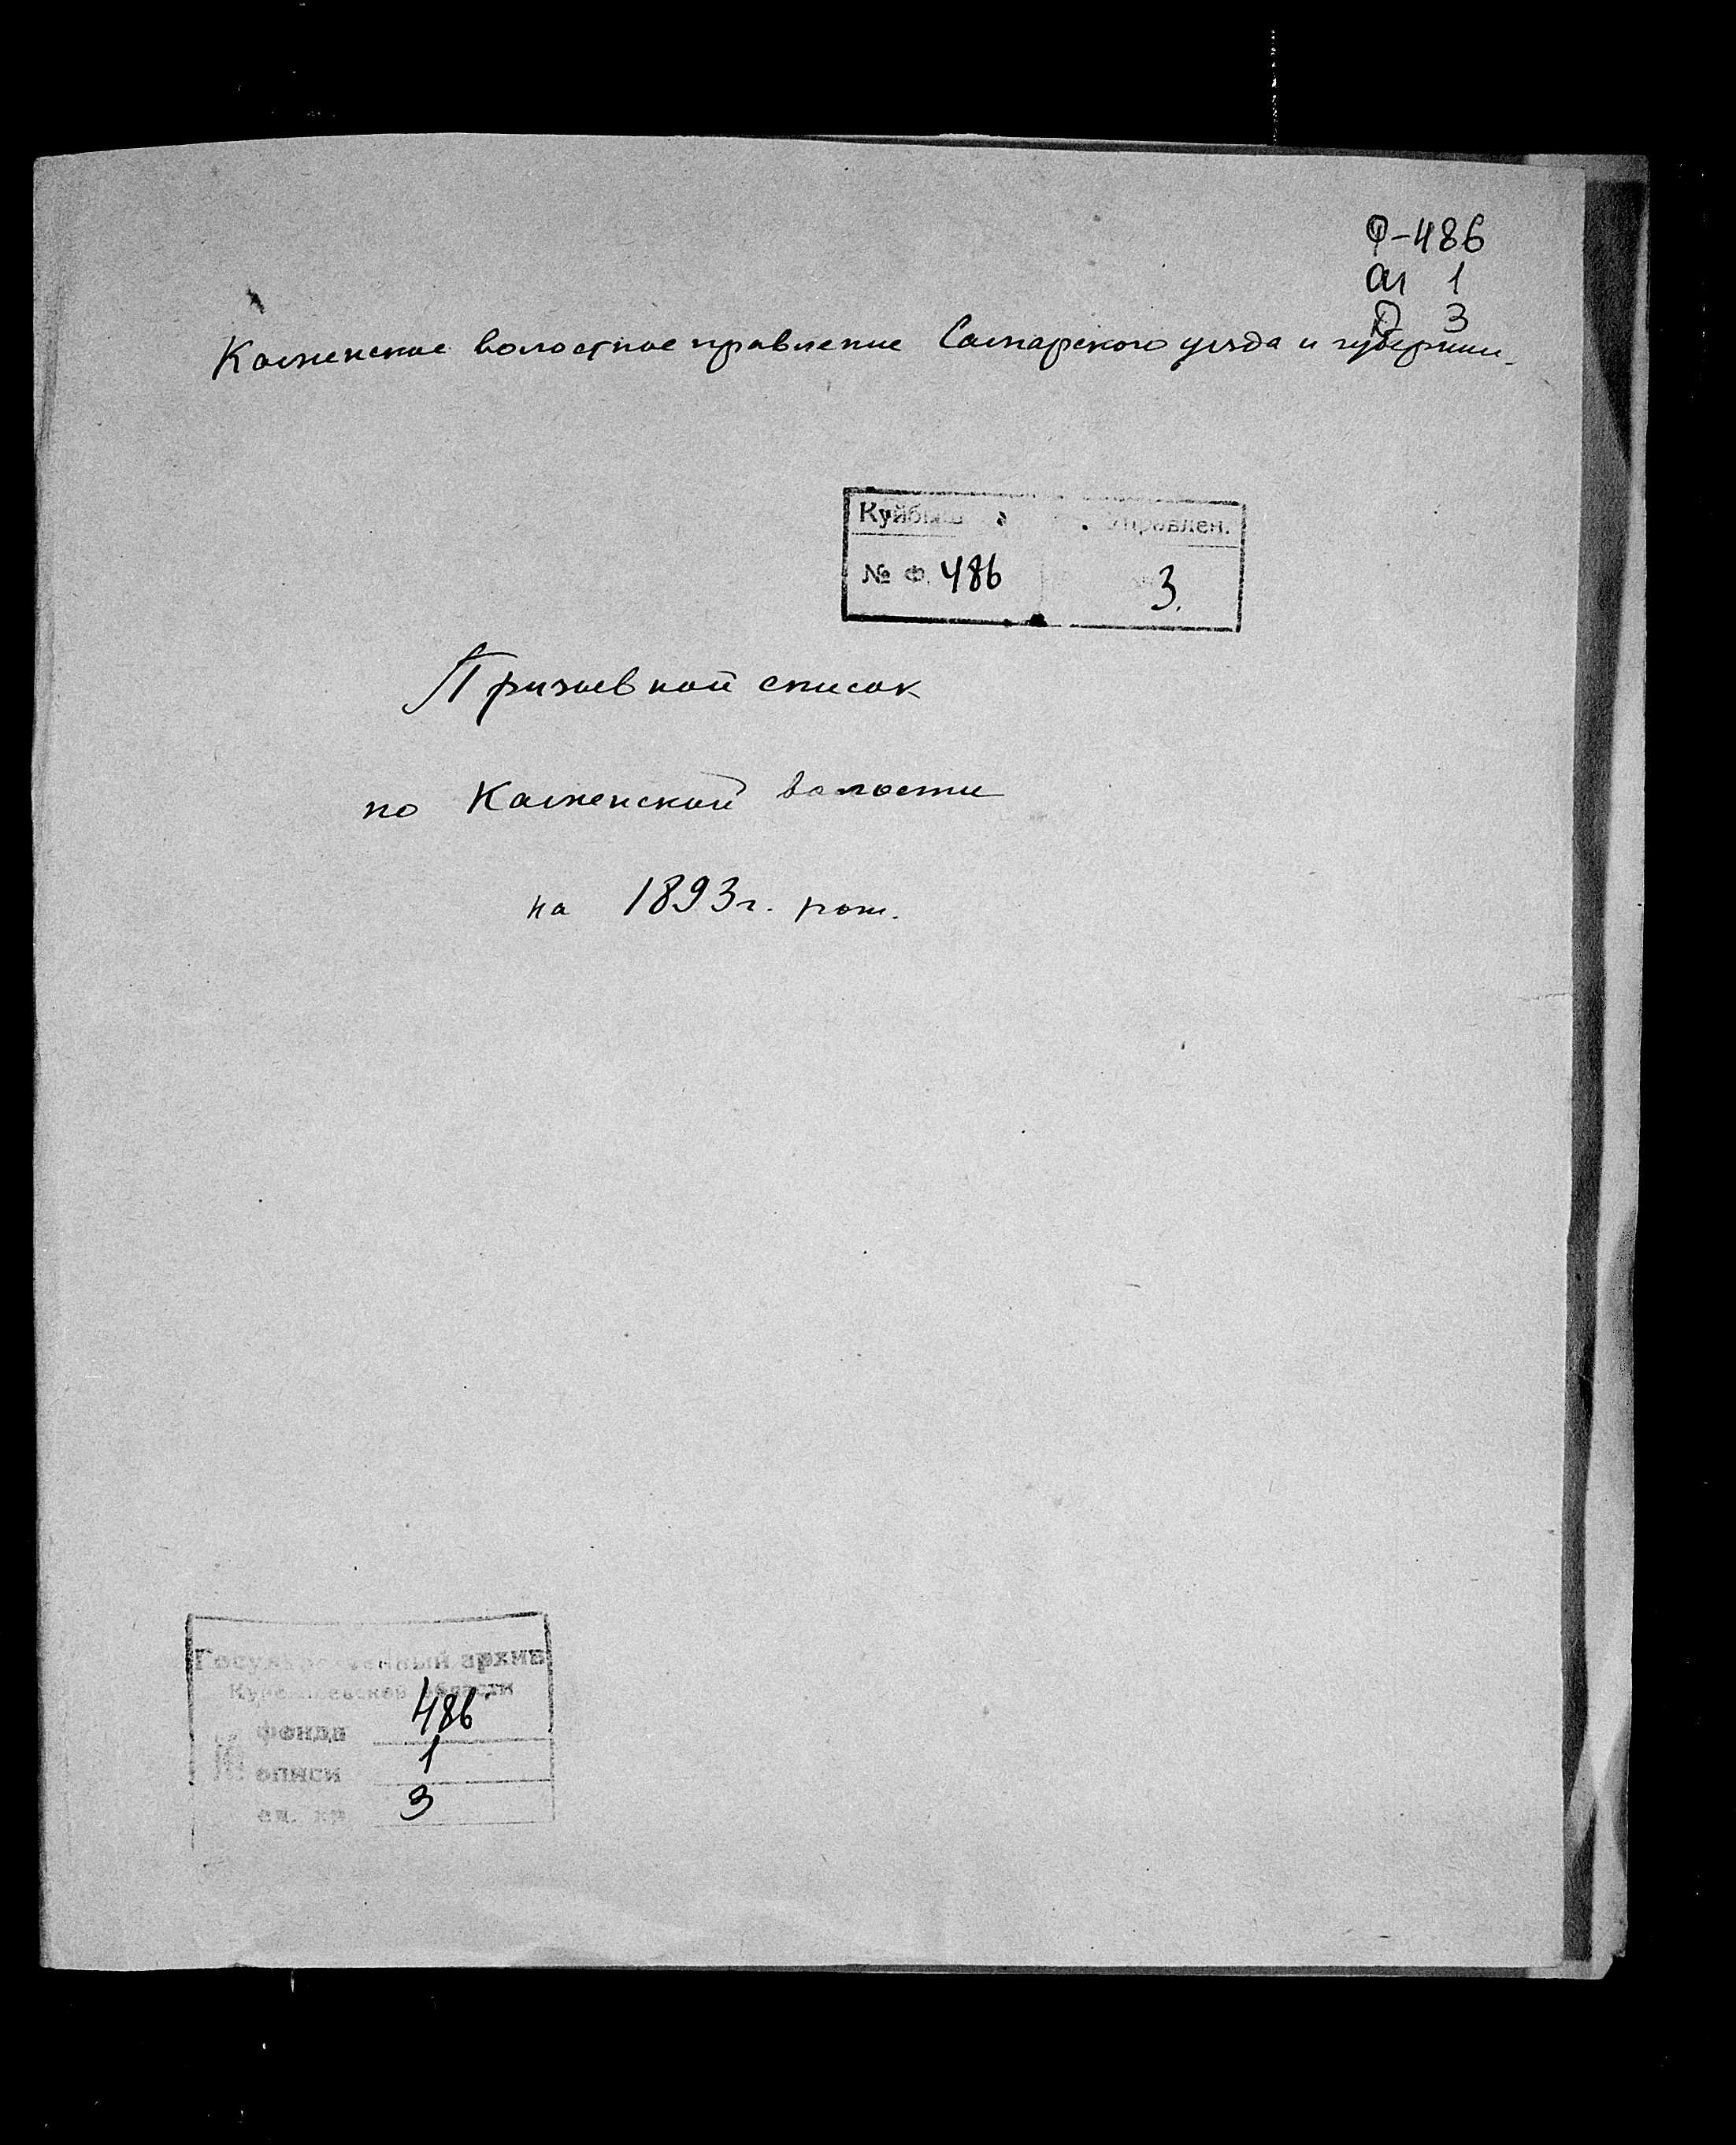 Ф-486
оп 1
Д 3
Каменское волостное правление Самарского уезда и губернии.
Куйбыш управлен.
№ Ф. 486 3.
Призывной список
по Каменской волости
на 1893 г. рож.
Государственный архив
Куйбышевской области
№ фонда 486
описи 1
ед. хр 3